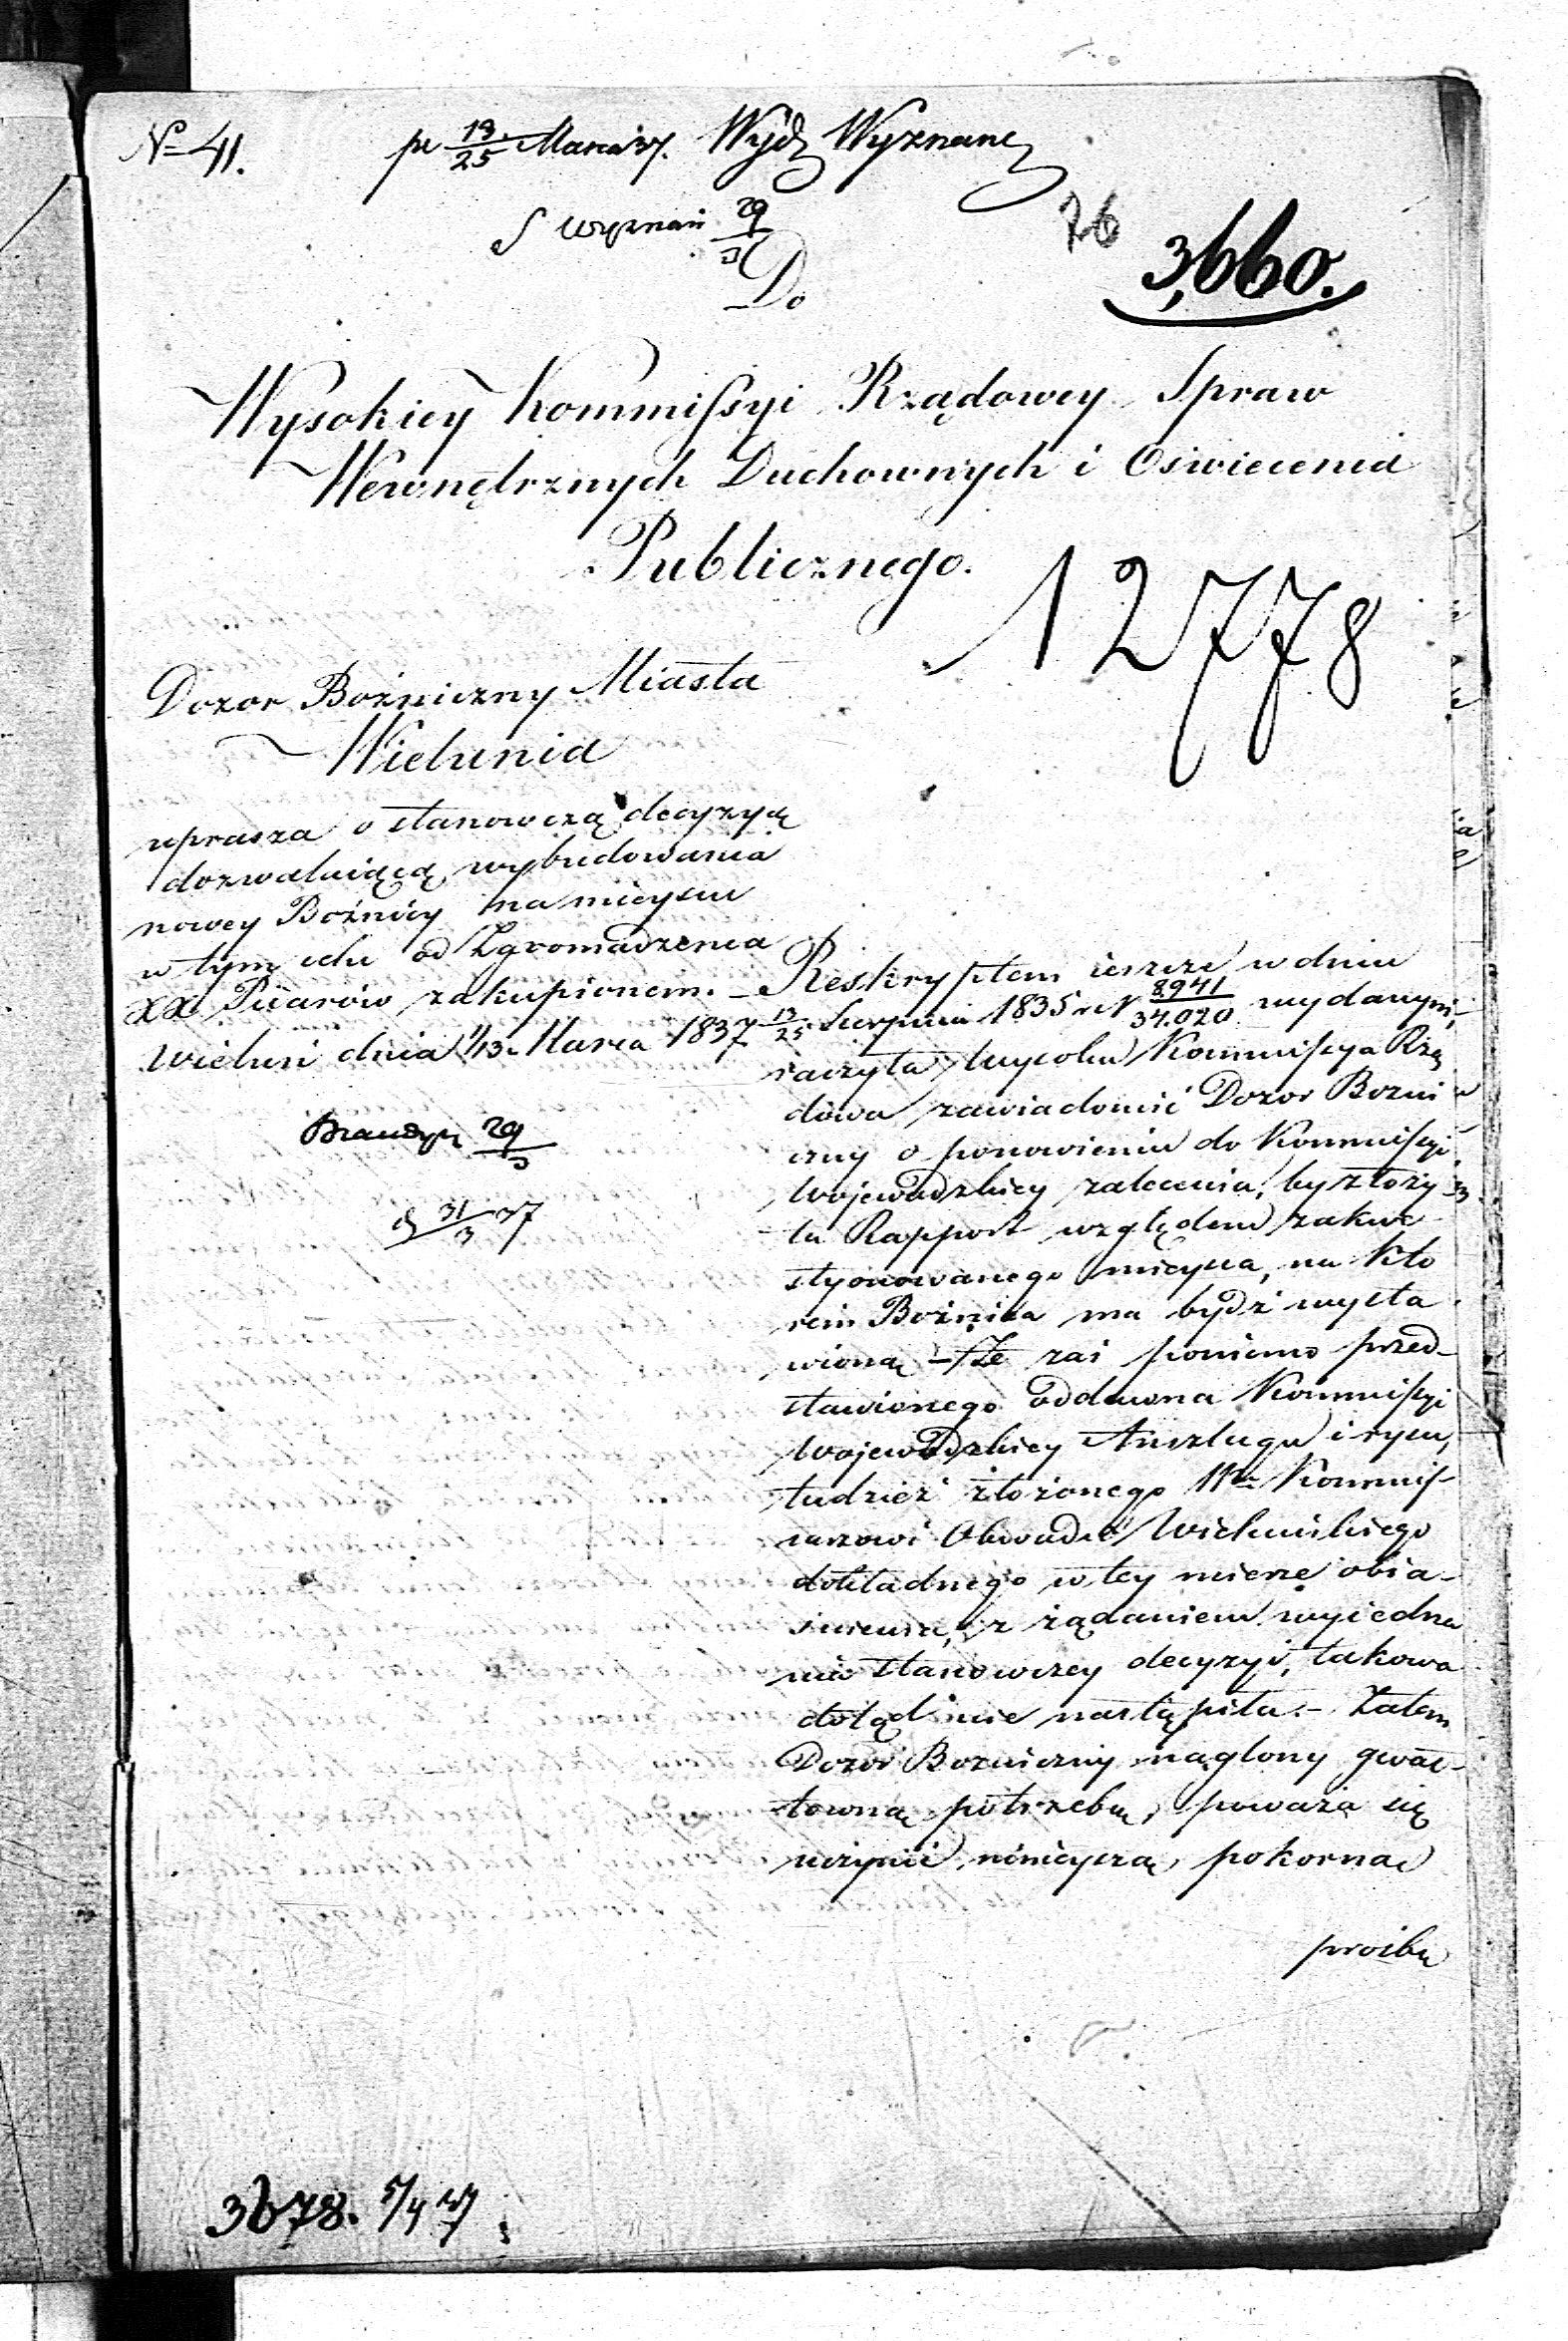 No 41.
pr 13/25 Marca 37. Wydz Wyznane
S wyznań 29/3
26
3,660.
Do
Wysokiey Kommissyi Rządowey Spraw
Wewnętrznych Duchownych i Oswiecenia
Publicznego.
12778
Dozor Bożniczny Miasta
Wielunia
uprasza o stanowczą decyzyą
dozwalniącą wybudowania
nowey Bożnicy na mieyscu
w tym celu od Zgromadzenia
XX Piiarów zakupionem. –
Wieluń dnia 1/13 Marca 1837
29/3
31/3 37
Reskryptem ieszcze w dniu
13/25 Sierpnia 1835 r N 8941/34.020 wydanym,
raczyła Wysoka Kommissya Rzą
dowa zawiadomić Dozor Bozni
czny o ponowieniu do Kommissyi
Wojewodzkiey zalecenia, by złoży
ła Rapport względem zakwe
styonowanego mieysca, na kto
rem Bożnica ma bydź wysta
wioną – Że zaś pomimo przed–
stawionego oddawna Kommissyi
Wojewodzkiey Anszlagu i rysu,
tudzież złożonego Kommis–
sarzowi Obwodu Wieluńskiego
dokładnego w tey mierze obia–
snienia, z żądaniem wyiedna
nia stanowczey decyzyi, takowa
dotąd nie nastąpiła. – Zatem
Dozor Bozniczny naglony gwał–
towną potrzebą, poważa się
uczynić ninieyszą pokorną
prośbę
3678. 5/4 37